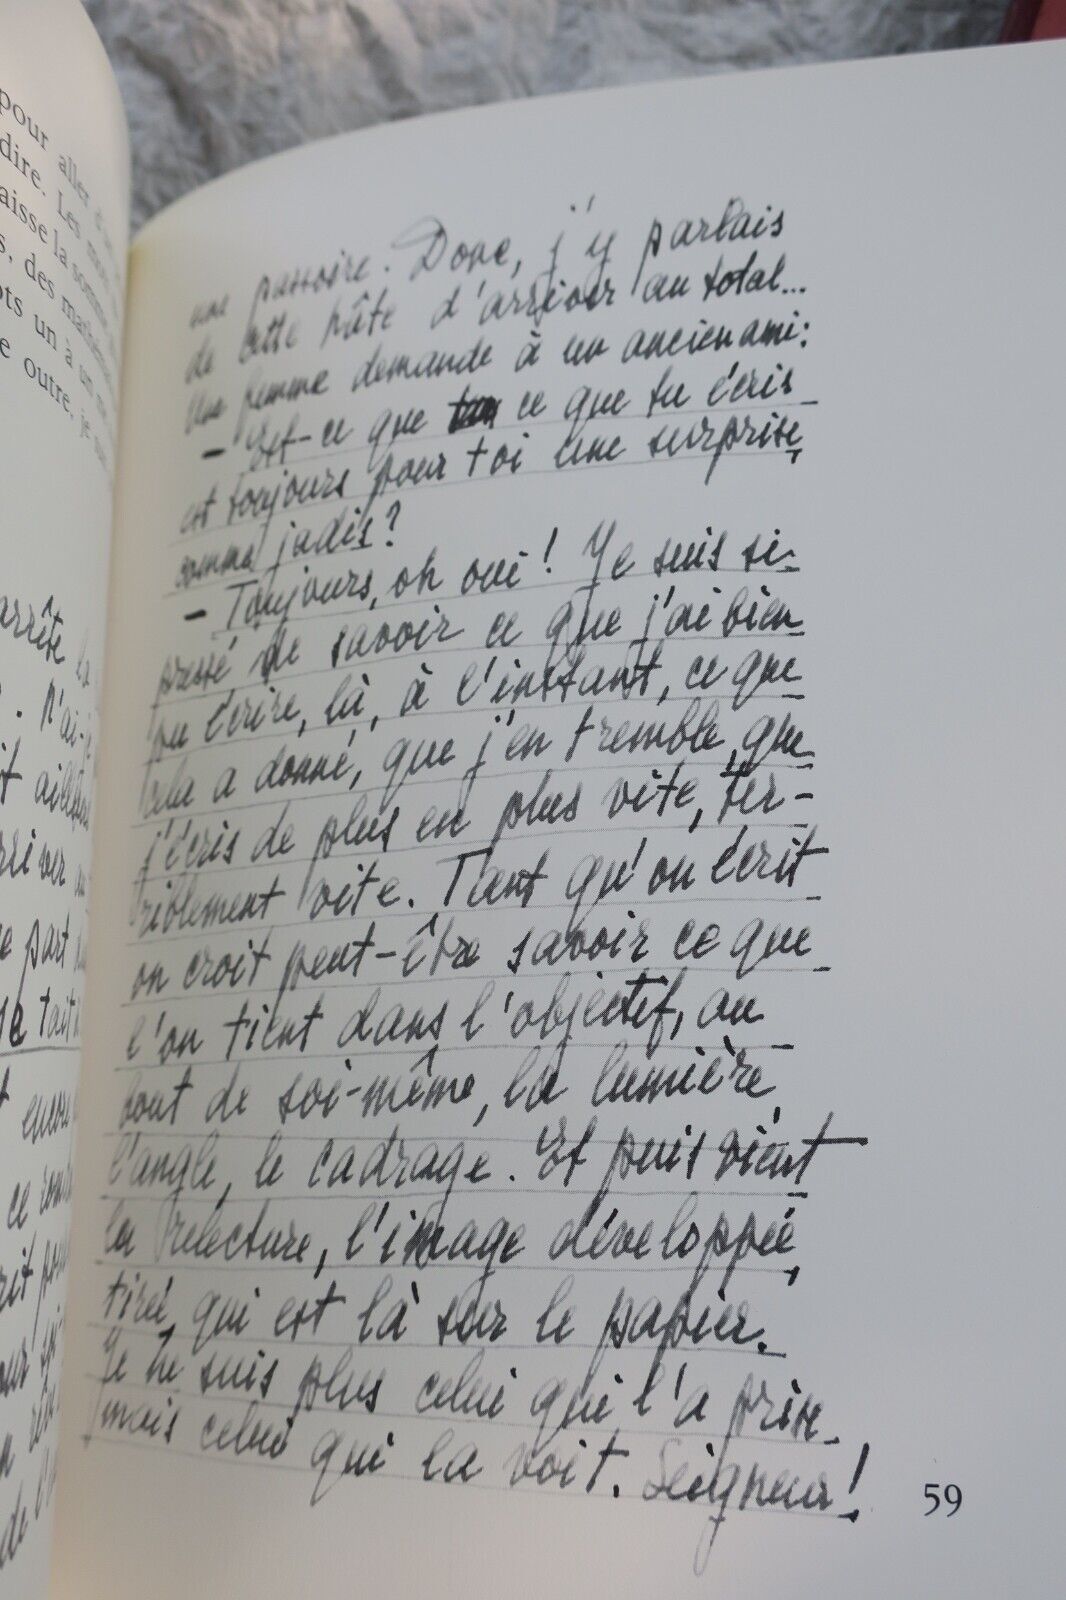 pour aller d'un
dire. Les mots
aisse la somme
s, des
ots un à un
e outre, je
arrête
. N'ai-j
t ailleurs
rriver
e part
se tait
t encore
ce
rit
de
une passoire. Donc, j'y parlais
de cette hâte d'arriver au total...
Une femme demande à un ancien ami:
– Est-ce que ce que tu écris
est toujours pour toi une surprise,
comme jadis?
– Toujours, oh oui! Je suis si
pressé de savoir ce que j'ai bien
pu écrire, là, à l'instant, ce que
cela a donné, que j'en tremble, que
j'écris de plus en plus vite, ter-
riblement vite. Tant qu'on écrit
on croit peut-être savoir ce que
l'on tient dans l'objectif, au
bout de soi-même, la lumière,
l'angle, le cadrage. Et puis vient
la relecture, l'image développée,
tirée, qui est là sur le papier.
Je ne suis plus celui qui l'a prise
mais celui qui la voit. Seigneur!
59